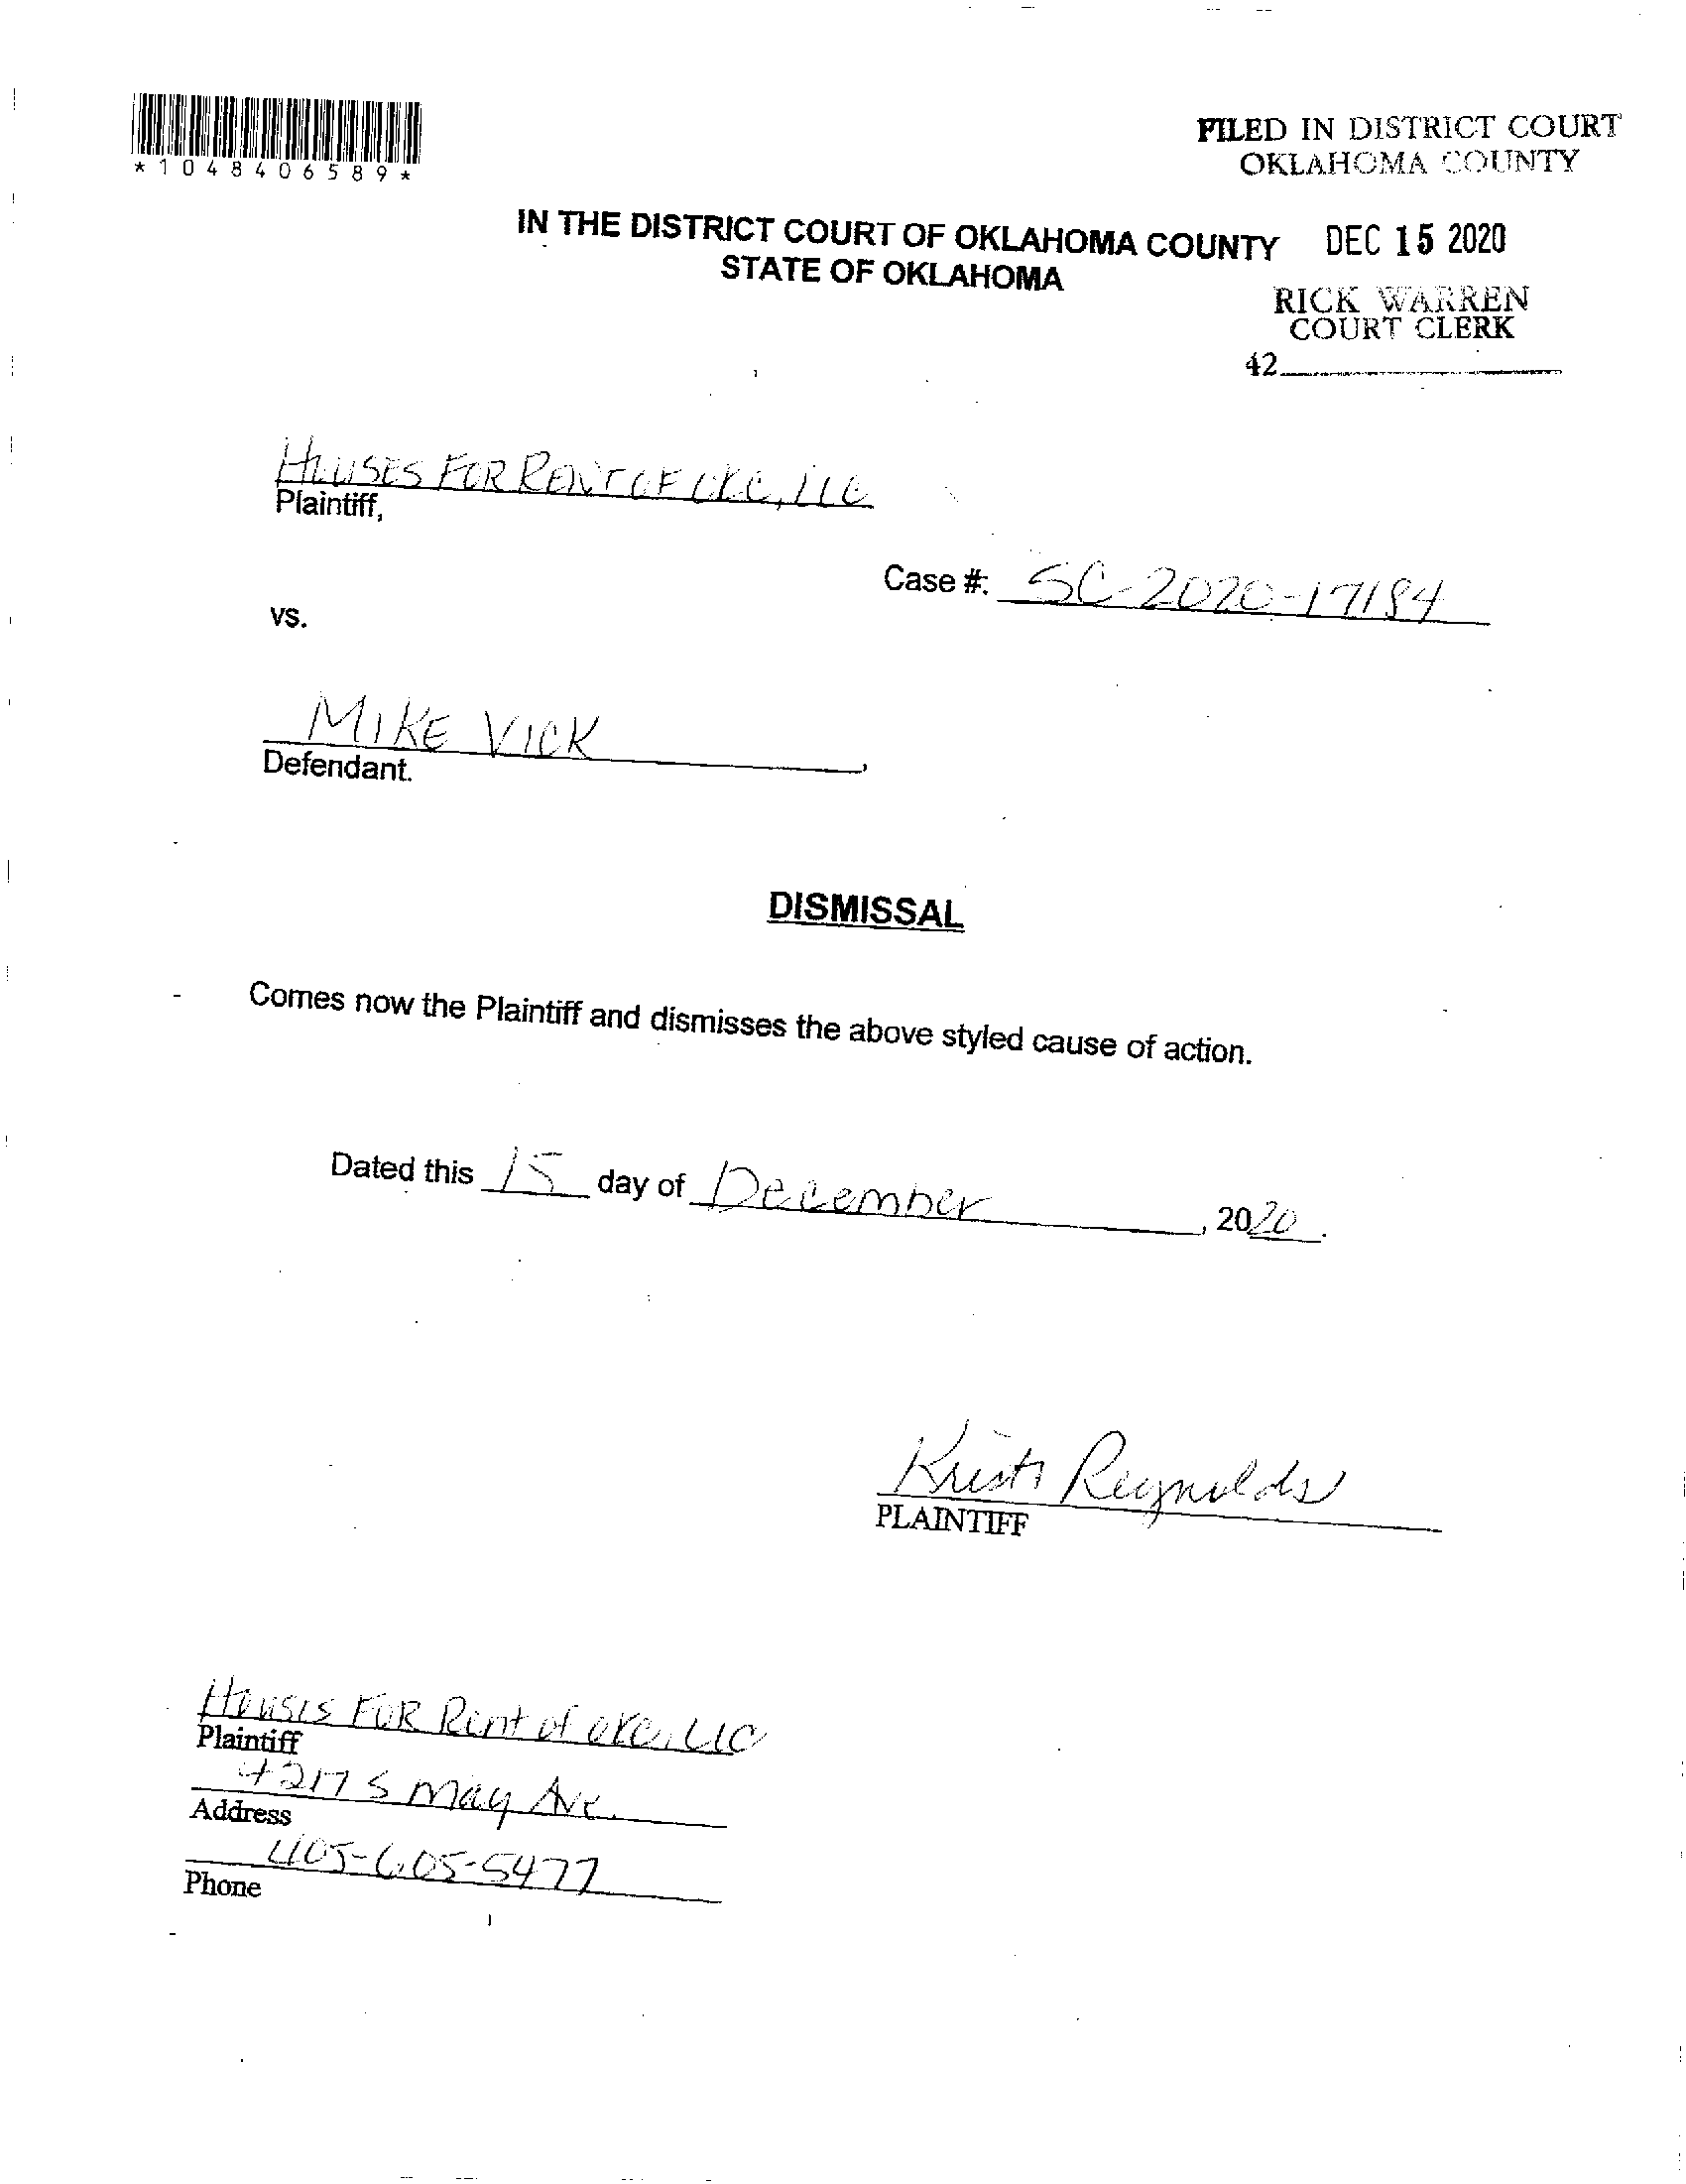 *1048406589*
FILED IN DISTRICT COURT
OKLAHOMA COUNTY
IN THE DISTRICT COURT OF OKLAHOMA COUNTY
STATE OF OKLAHOMA
DEC 15 2020
RICK WARREN
COURT CLERK
42
HOUSES FOR RENT OF OKC, LLC
Plaintiff,
Case #: SC-2020-17184
vs.
MIKE VICK,
Defendant.
DISMISSAL
Comes now the Plaintiff and dismisses the above styled cause of action.
Dated this 15 day of December, 2020.
Kristi Reynolds
PLAINTIFF
Houses FOR Rent of OKC, LLC
Plaintiff
4217 S May Ave.
Address
405-605-5477
Phone